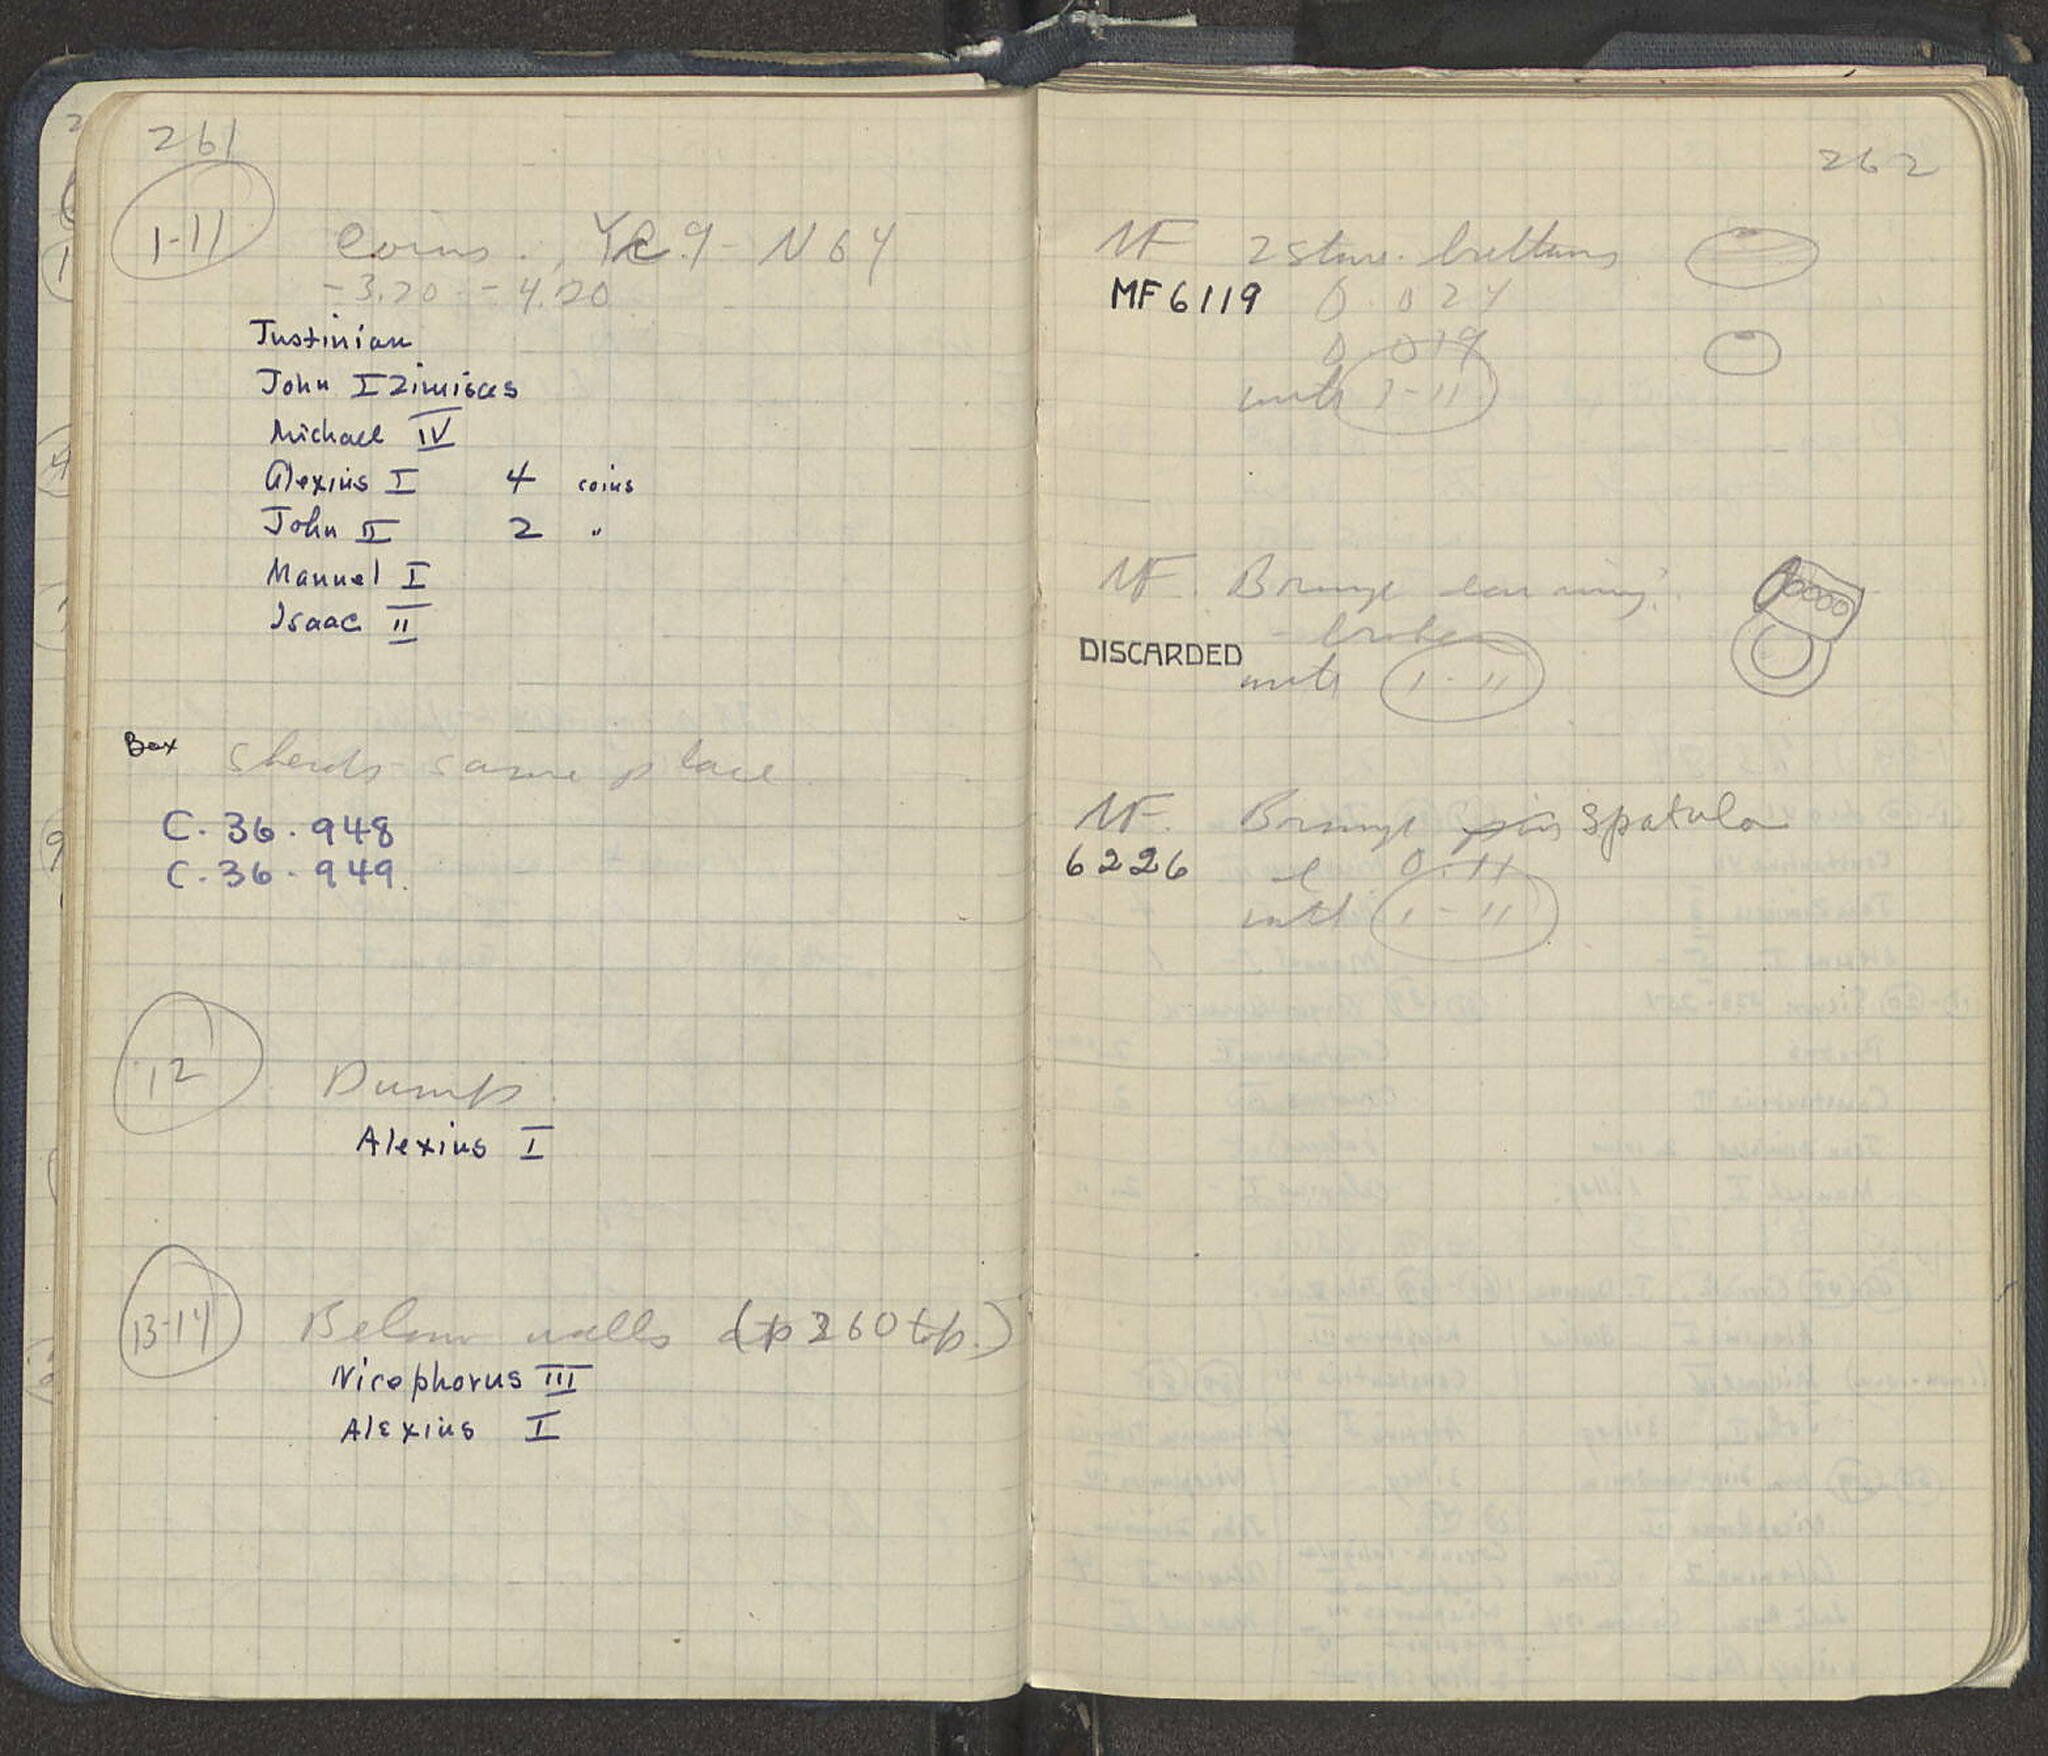 261
1-11 Coins. Yc.9- N64
-3.20 - -4.00
Justinian
John I Zimisces
Michael IV
Alexius I 4 coins
John II 2 "
Manuel I
Isaac II
Box Sherds same place
C. 36. 948
C. 36. 949.
12 Dumps.
Alexius I
13-14 Below walls (p 260 top.)
Nicephorus III
Alexius I
262
MF 2 stone buttons
MF 6119 0.024
0.019
with 1-11
MF. Bronze earring.
- broken
DISCARDED
with 1-11
MF. Bronze pin spatula
6226 l 0.11
with 1-11